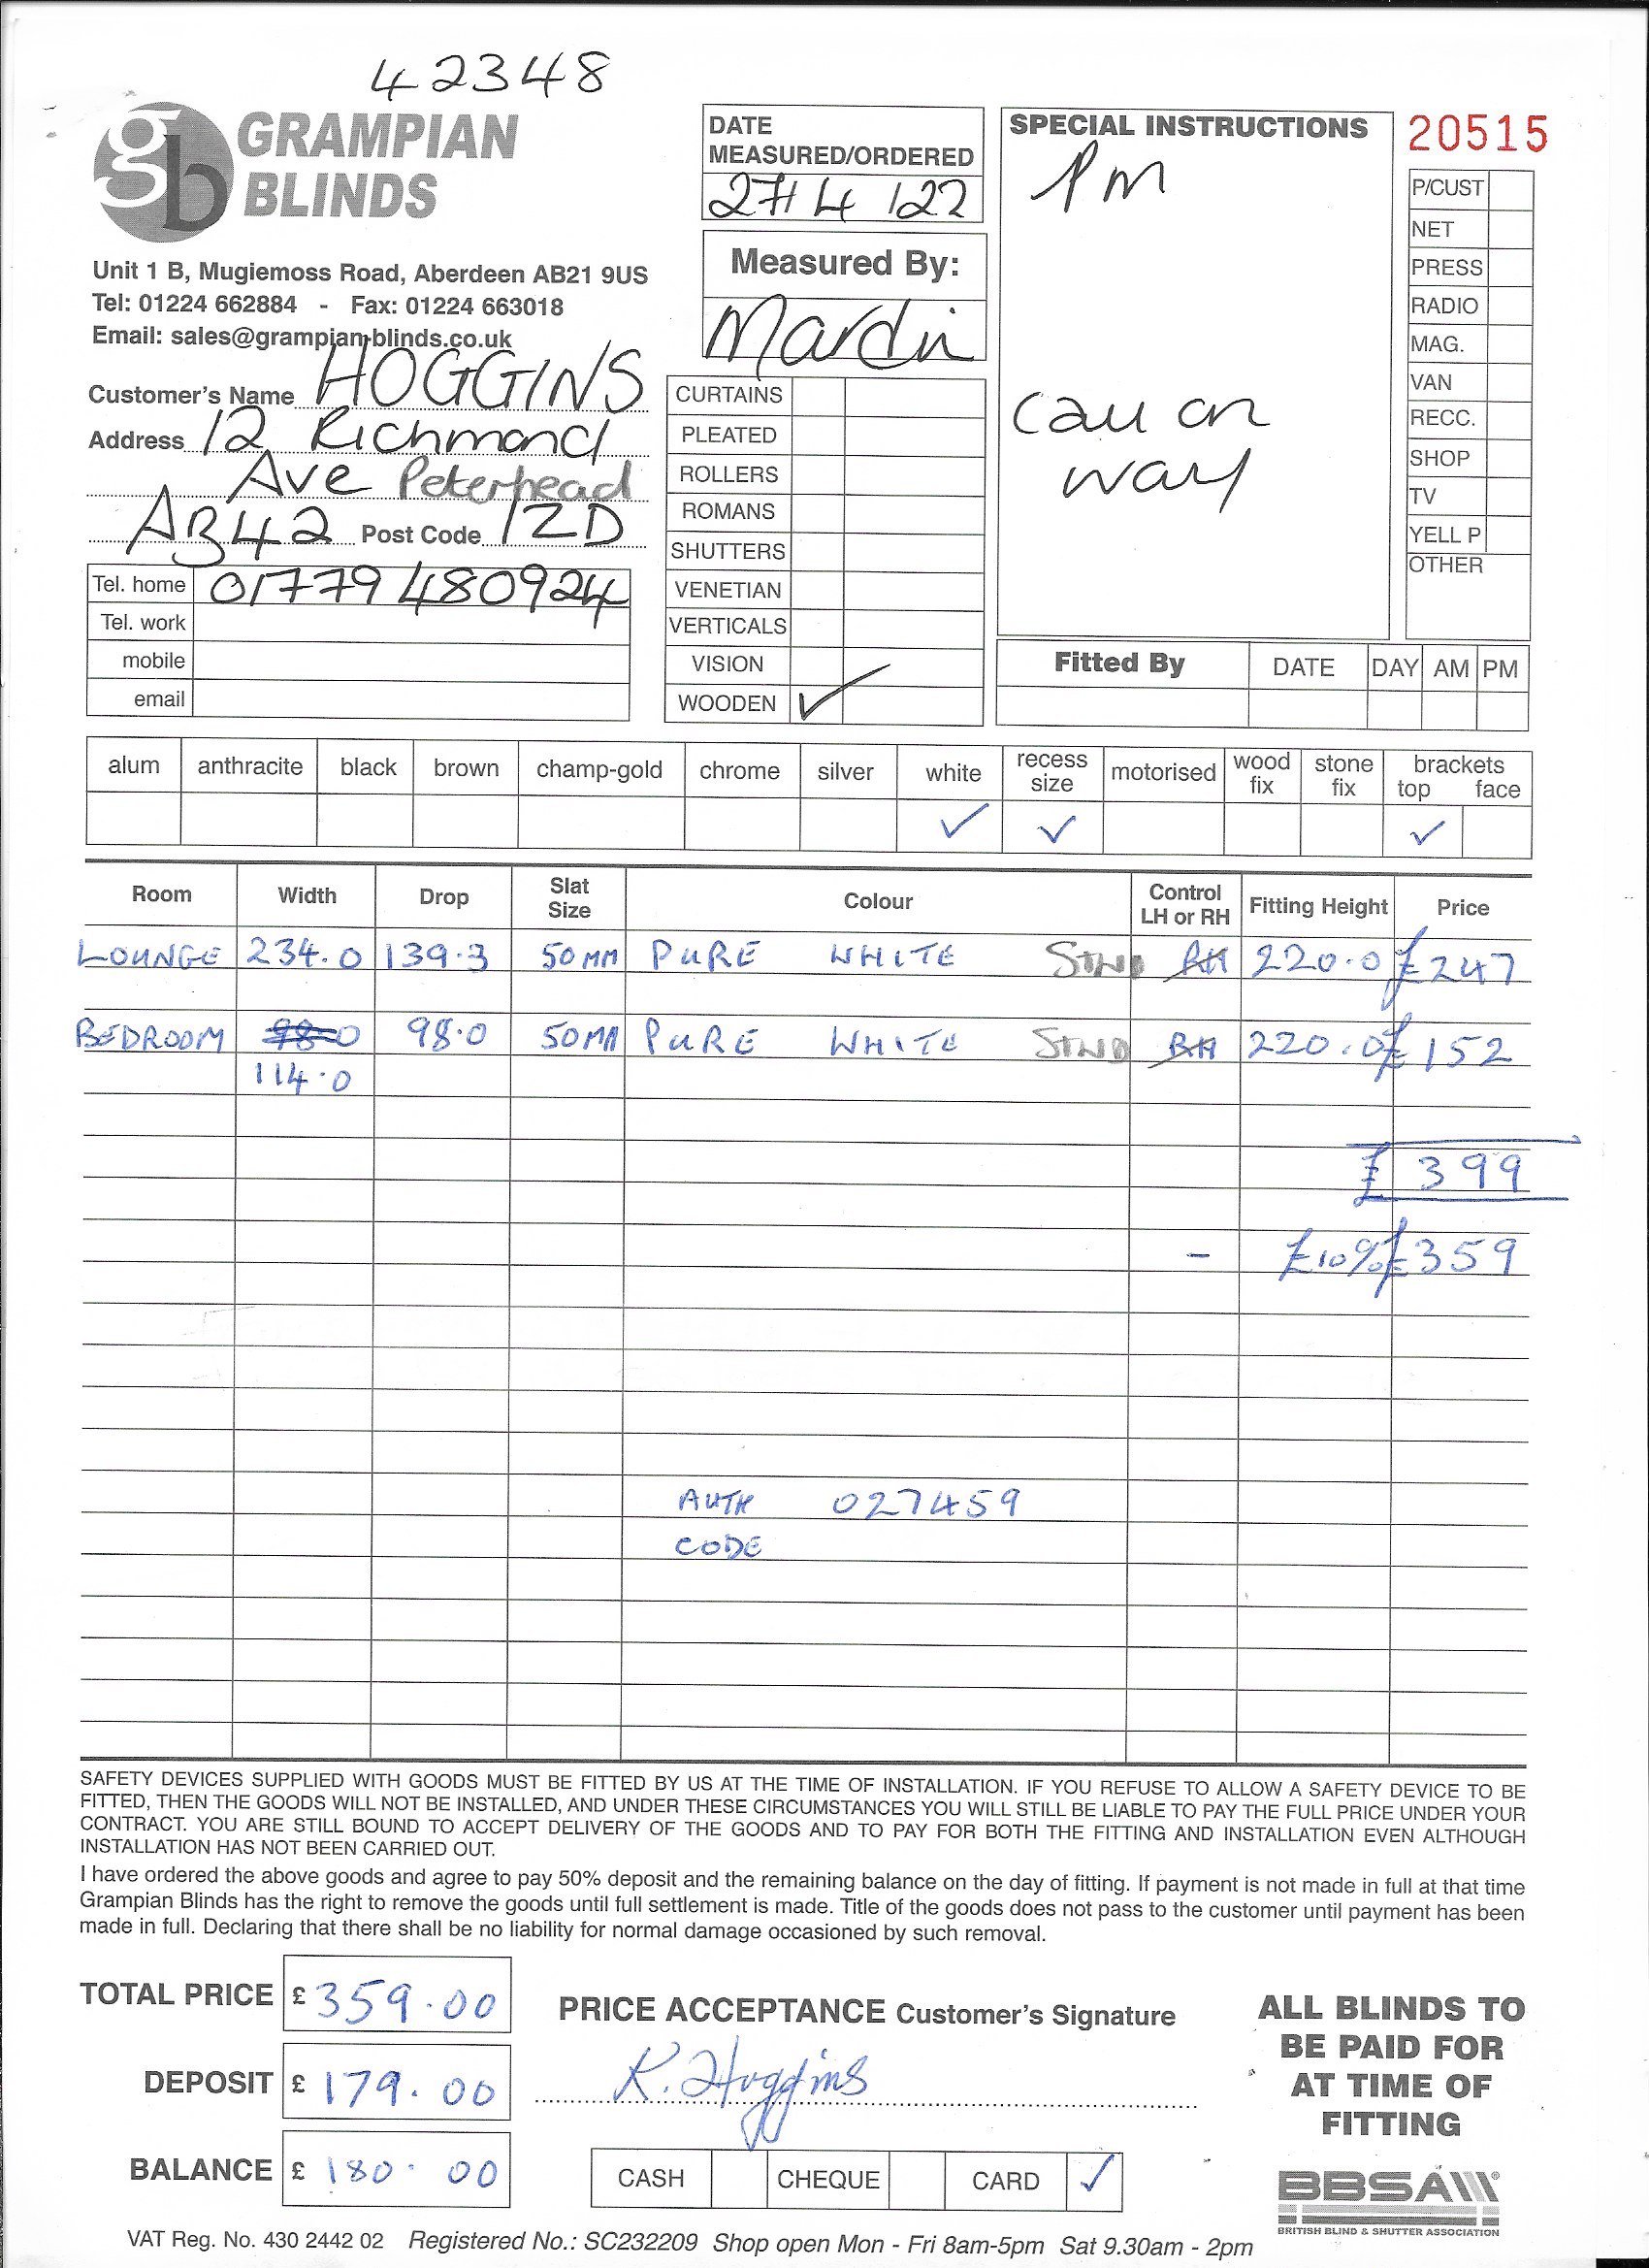 42348
gb GRAMPIAN
BLINDS
Unit 1 B, Mugiemoss Road, Aberdeen AB21 9US
Tel: 01224 662884 - Fax: 01224 663018
Email: sales@grampian-blinds.co.uk
Customer's Name HOGGINS
Address 12 Richmond
Ave Peterhead
AB42 Post Code 1ZD
Tel. home 01779 480924
Tel. work
mobile
email
DATE
MEASURED/ORDERED
27/4/22
Measured By:
Martin
CURTAINS
PLEATED
ROLLERS
ROMANS
SHUTTERS
VENETIAN
VERTICALS
VISION
WOODEN ✓
SPECIAL INSTRUCTIONS
PM
Call on
way
20515
P/CUST
NET
PRESS
RADIO
MAG.
VAN
RECC.
SHOP
TV
YELL P
OTHER
Fitted By DATE DAY AM PM
alum anthracite black brown champ-gold chrome silver white recess size motorised wood fix stone fix brackets top face
✓ ✓ ✓
Room Width Drop Slat Size Colour Control LH or RH Fitting Height Price
LOUNGE 234.0 139.3 50MM PURE WHITE STND RH 220.0 £247
BEDROOM 98.0 98.0 50MM PURE WHITE STND RH 220.0 £152
114.0
£399
- £10% £359
AUTH 027459
CODE
SAFETY DEVICES SUPPLIED WITH GOODS MUST BE FITTED BY US AT THE TIME OF INSTALLATION. IF YOU REFUSE TO ALLOW A SAFETY DEVICE TO BE
FITTED, THEN THE GOODS WILL NOT BE INSTALLED, AND UNDER THESE CIRCUMSTANCES YOU WILL STILL BE LIABLE TO PAY THE FULL PRICE UNDER YOUR
CONTRACT. YOU ARE STILL BOUND TO ACCEPT DELIVERY OF THE GOODS AND TO PAY FOR BOTH THE FITTING AND INSTALLATION EVEN ALTHOUGH
INSTALLATION HAS NOT BEEN CARRIED OUT.
I have ordered the above goods and agree to pay 50% deposit and the remaining balance on the day of fitting. If payment is not made in full at that time
Grampian Blinds has the right to remove the goods until full settlement is made. Title of the goods does not pass to the customer until payment has been
made in full. Declaring that there shall be no liability for normal damage occasioned by such removal.
TOTAL PRICE £ 359.00
DEPOSIT £ 179.00
BALANCE £ 180.00
PRICE ACCEPTANCE Customer's Signature
K. Hoggins
CASH CHEQUE CARD ✓
ALL BLINDS TO
BE PAID FOR
AT TIME OF
FITTING
BBSA
BRITISH BLIND & SHUTTER ASSOCIATION
VAT Reg. No. 430 2442 02 Registered No.: SC232209 Shop open Mon - Fri 8am-5pm Sat 9.30am - 2pm